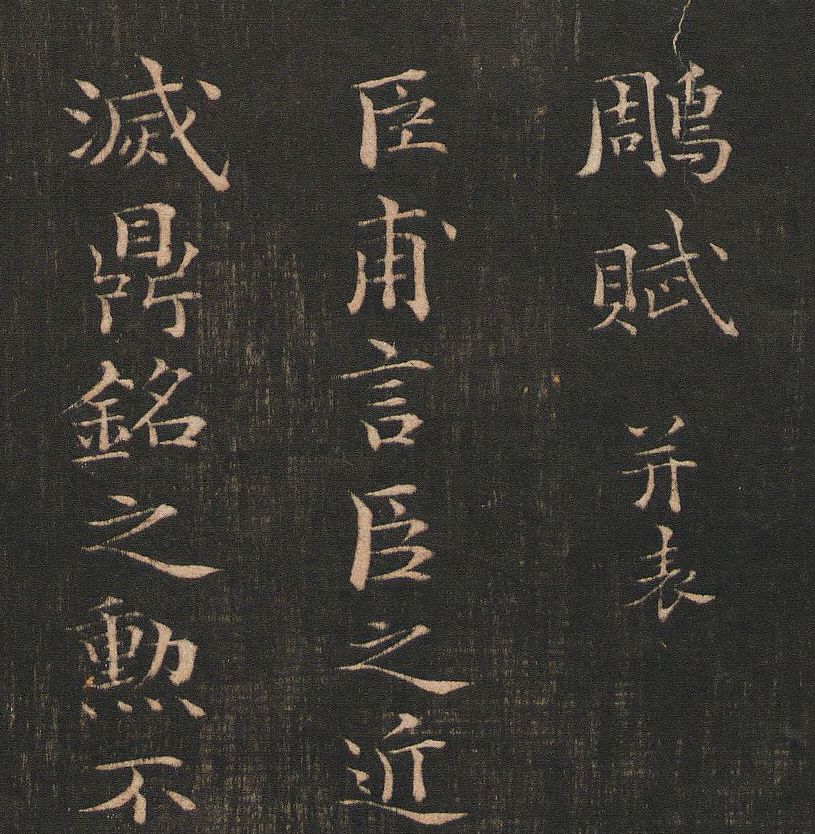 鵰賦 并表
臣甫言臣之近
滅鼎銘之勲不